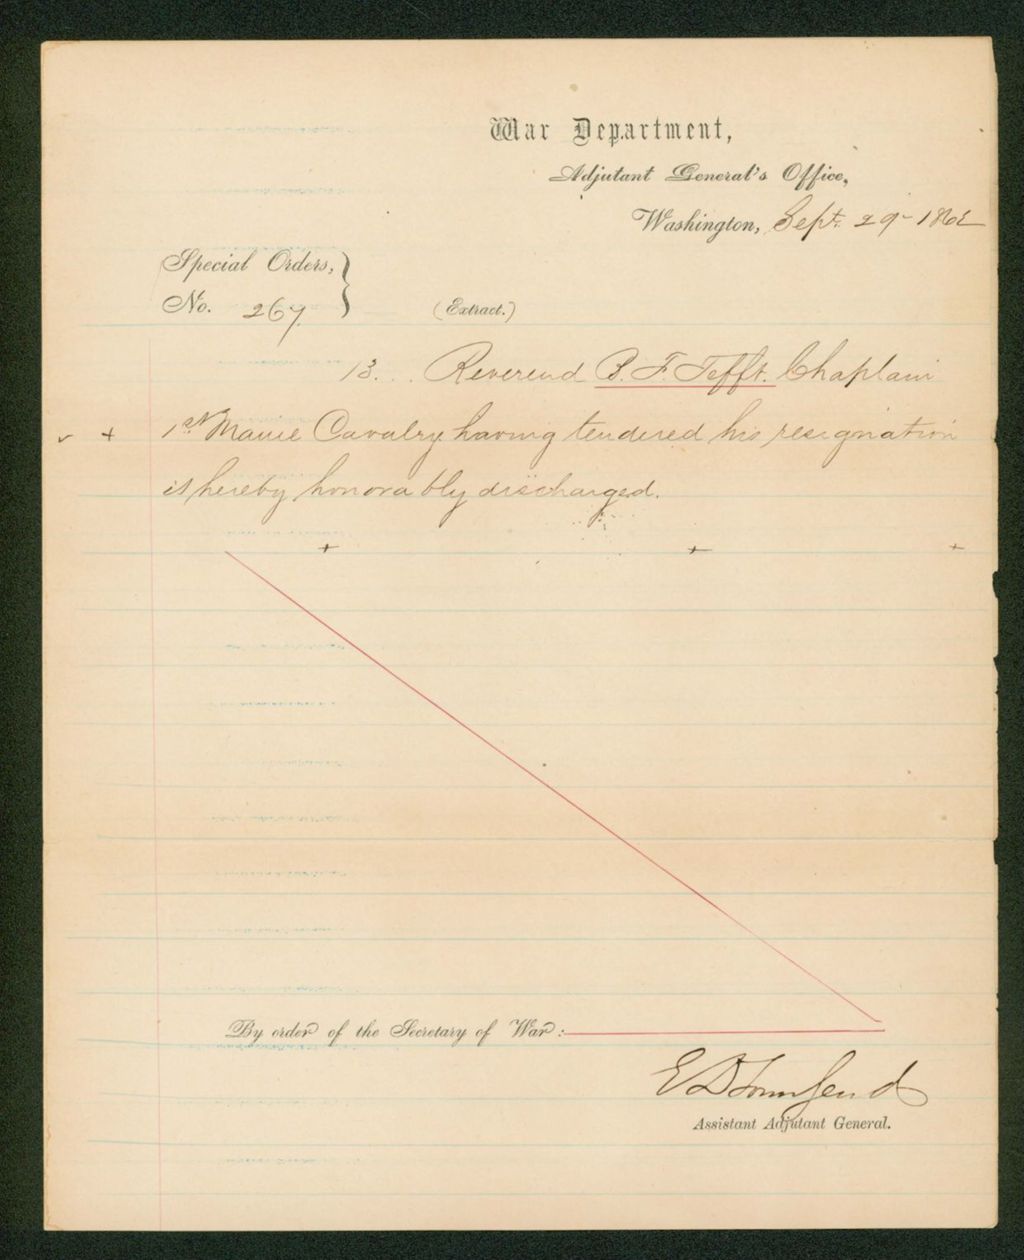 War Department,
Adjutant General's Office,
Washington, Sept. 29 1862
Special Orders,
No. 267
(Extract.)
13... Reverend B. F. Tefft. Chaplain
1st Maine Cavalry having tendered his resignation
is hereby honorably discharged.
+ + +
By order of the Secretary of War:
E D Townsend
Assistant Adjutant General.